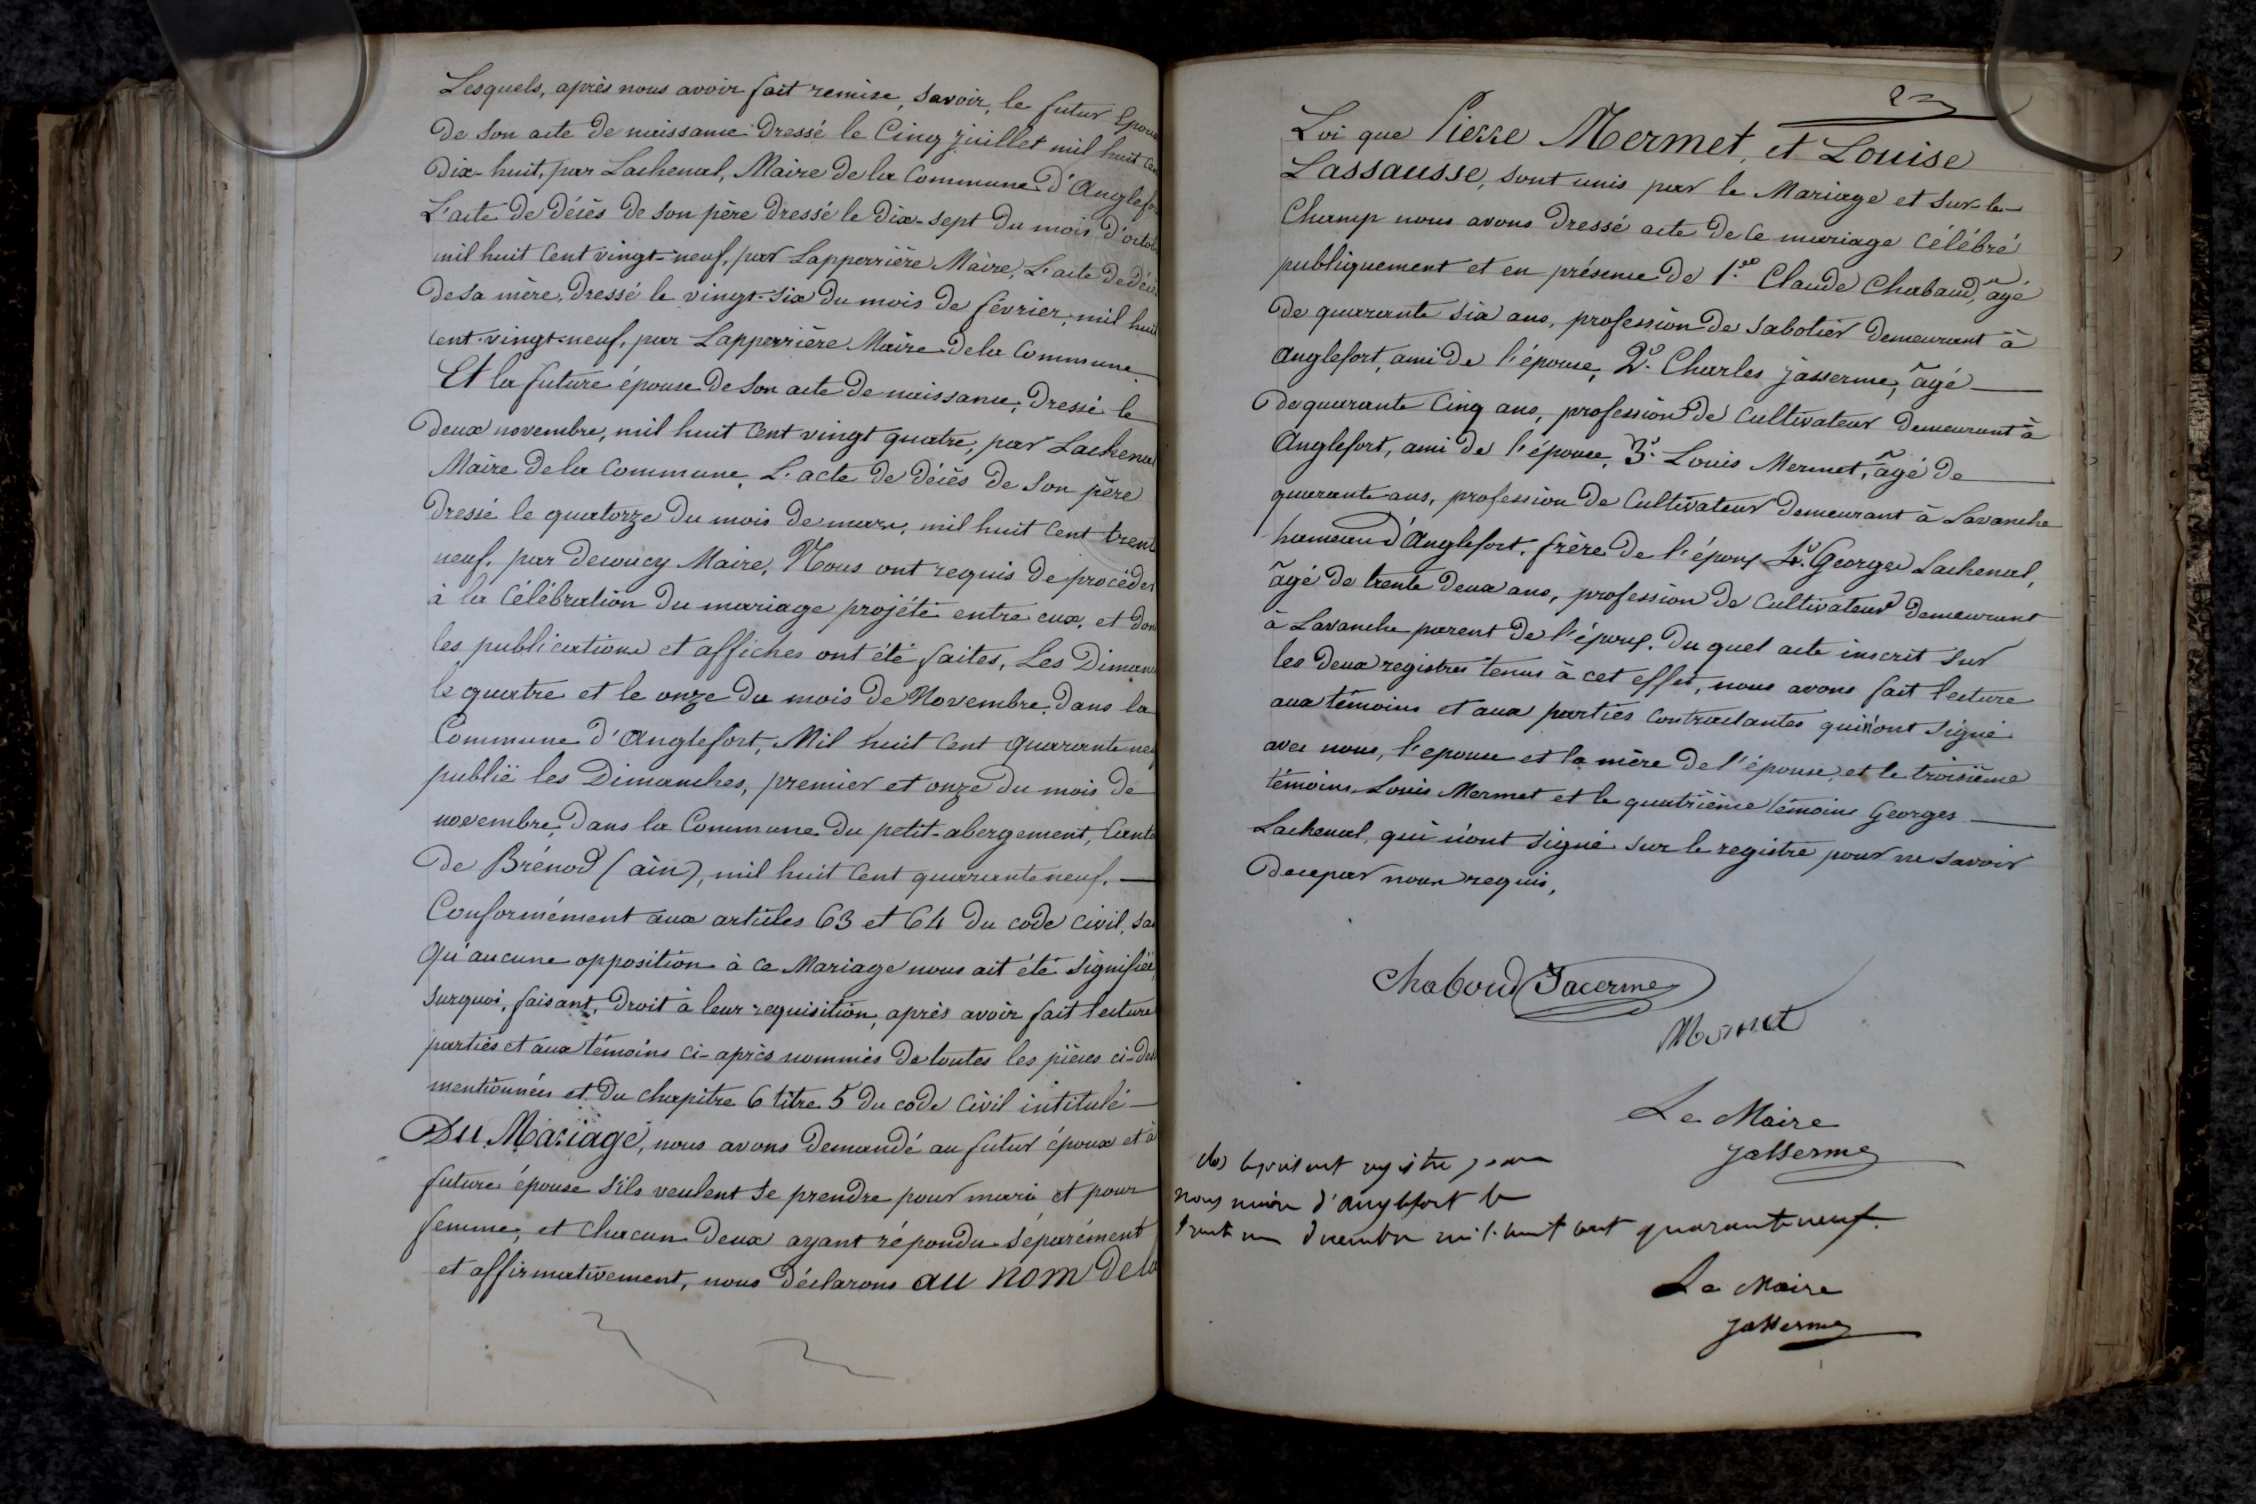 Lesquels, après nous avoir fait remise, savoir, le futur épou
de son acte de naissance dressé le Cinq juillet mil huit cen
dix-huit, par Lachenal, Maire de la Commune d'Anglefo
L'acte de décès de son père dressé le dix-sept du mois d'octob
mil huit cent vingt-neuf, par Lapperrière Maire, L'acte de décè
de sa mère, dressé le vingt-six du mois de février, mil huit
cent-vingt-neuf, par Lapperrière Maire de la Commune.
Et la future épouse de son acte de naissance, dressé le
deux novembre, mil huit cent vingt quatre, par Lachenal
Maire de la Commune, L'acte de décès de son père
dressé le quatorze du mois de mars, mil huit cent trent
neuf, par Maire, Nous ont requis de procéder
à la célébration du mariage projété entre eux, et don
les publications et affiches ont été faites, Les Diman
le quatre et le onze du mois de Novembre, dans la
Commune d'Anglefort, Mil huit cent quarante neu
publié les Dimanches, premier et onze du mois de
novembre, dans la Commune du petit-abergement, Canto
de Brénod (ain), mil huit cent quarante neuf.
Conformément aux articles 63 et 64 du code civil, sa
qu'aucune opposition à ce Mariage nous ait été signifiée,
surquoi, faisant, droit à leur requisition, après avoir fait lecture
parties et aux témoins ci-après nommés de toutes les pièces ci-des
mentionnées et du chapitre 6 titre 5 du code civil intitulé
Du Mariage, nous avons demandé au futur époux et à
future épouse s'ils veulent se prendre pour mari et pour
femme, et chacun deux ayant répondu séparément
et affirmativement, nous déclarons au nom de la
Loi que Pierre Mermet, et Louise
Lassausse, sont unis par le Mariage et sur-le-
Champ nous avons dressé acte de ce mariage célébré
publiquement et en présence de 1.º Claude Chabaud, âgé
de quarante six ans, profession de sabotier demeurant à
Anglefort, ami de l'épouse, 2.º Charles jasserme, âgé
de quarante cinq ans, profession de cultivateur demeurant à
Anglefort, ami de l'épouse, 3.º Louis Mermet, âgé de
quarante ans, profession de Cultivateur demeurant à Lavanche
hameau d'Anglefort, frère de l'époux 4.º George Lachenal,
âgé de trente deux ans, profession de cultivateur demeurant
à Lavanche parent de l'époux. Du quel acte inscrit sur
les deux registres tenus à cet effet, nous avons fait lecture
aux témoins et aux parties contractantes qui n'ont signé
avec nous, l'epouse et la mère de l'épouse, et le troisième
témoins Louis Mermet et le quatrième témoins Georges
Lachenal, qui n'ont signé sur le registre pour ne savoir
de ce par nous requis,
Chaboud Jacerme
Mermet
Le Maire
Jasserme
clos le présent registre par
nous maire d'Anglefort le
trente un decembre mil huit cent quarante neuf.
Le Maire
Jasserme